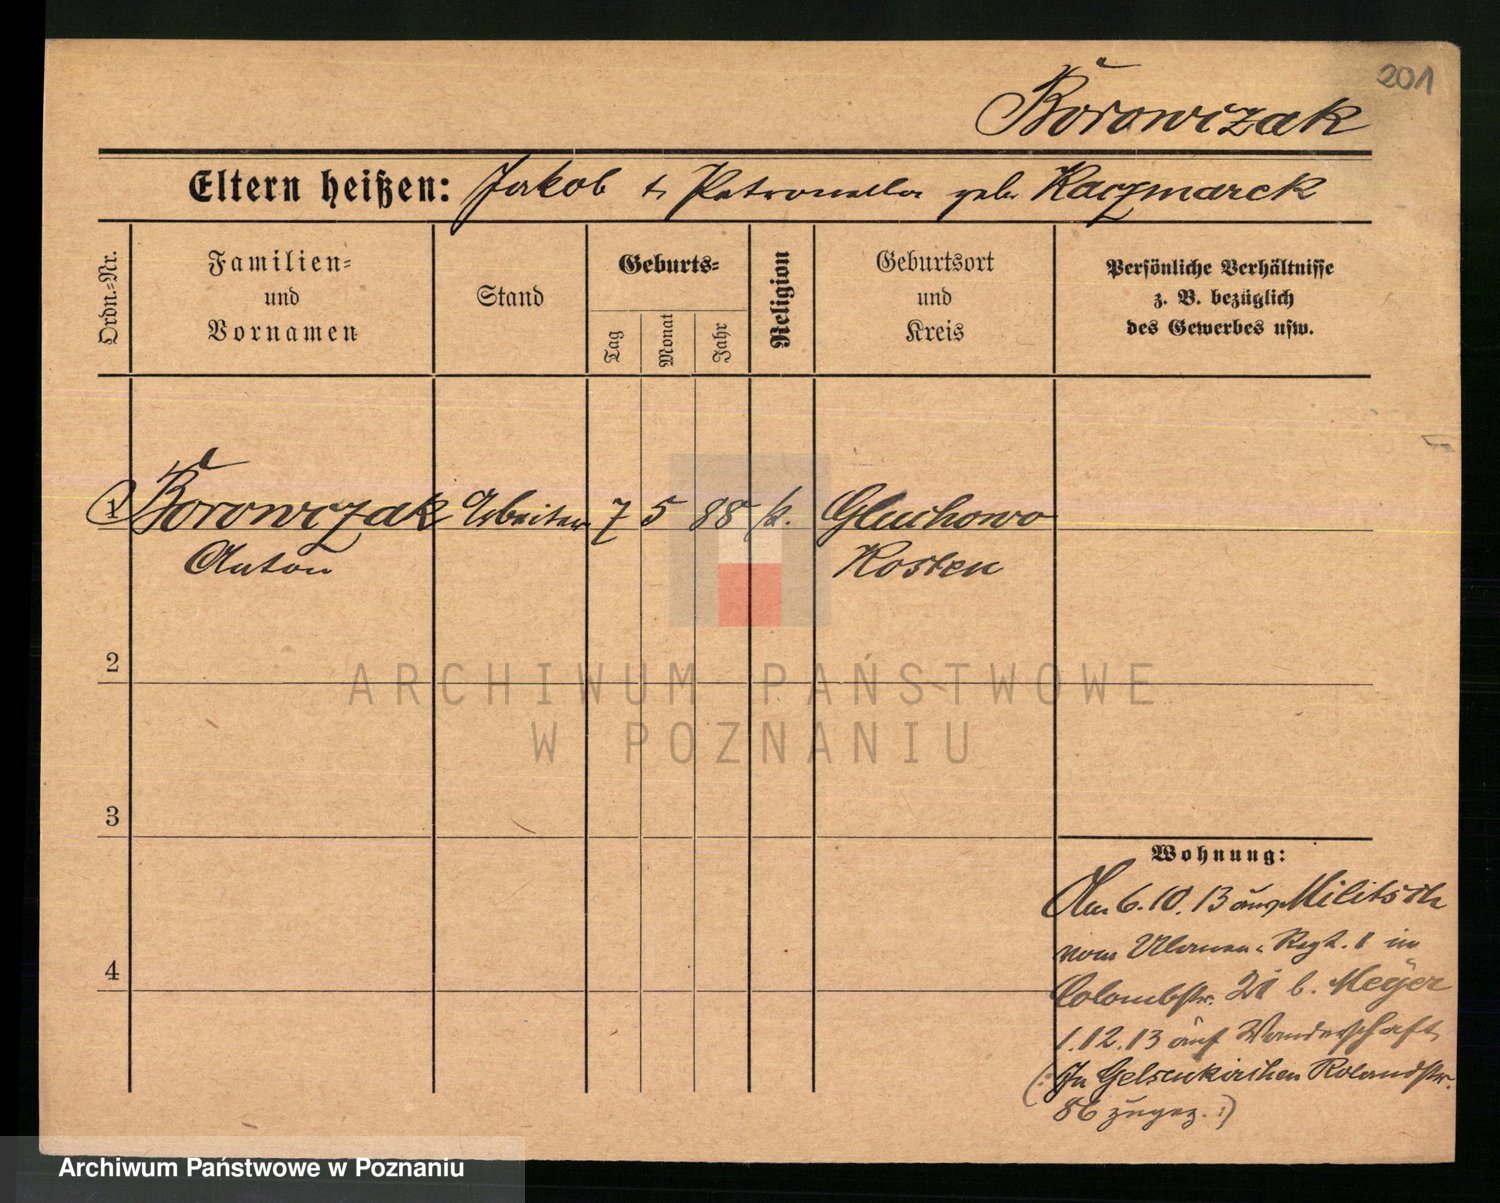 201
Borowczak
Eltern heißen: Jakob & Petronella geb Kaczmarek
Ordn.-Nr.
Familien-
und
Vornamen
Stand
Geburts-
Tag
Monat
Jahr
Religion
Geburtsort
und
Kreis
Persönliche Verhältnisse
z. B. bezüglich
des Gewerbes usw.
1 Borowczak Arbeiter 7 5 88 k. Gluchowo
Anton Kosten
2
3
4
Wohnung:
Am 6.10.13 aus Militsch
vom Ulanen-Regt. 1 in
Colombstr. 21 b. Meyer
1.12.13 auf Wanderschaft
(: In Gelsenkirchen Rolandstr.
86 zugez. :)
ARCHIWUM PAŃSTWOWE
W POZNANIU
Archiwum Państwowe w Poznaniu